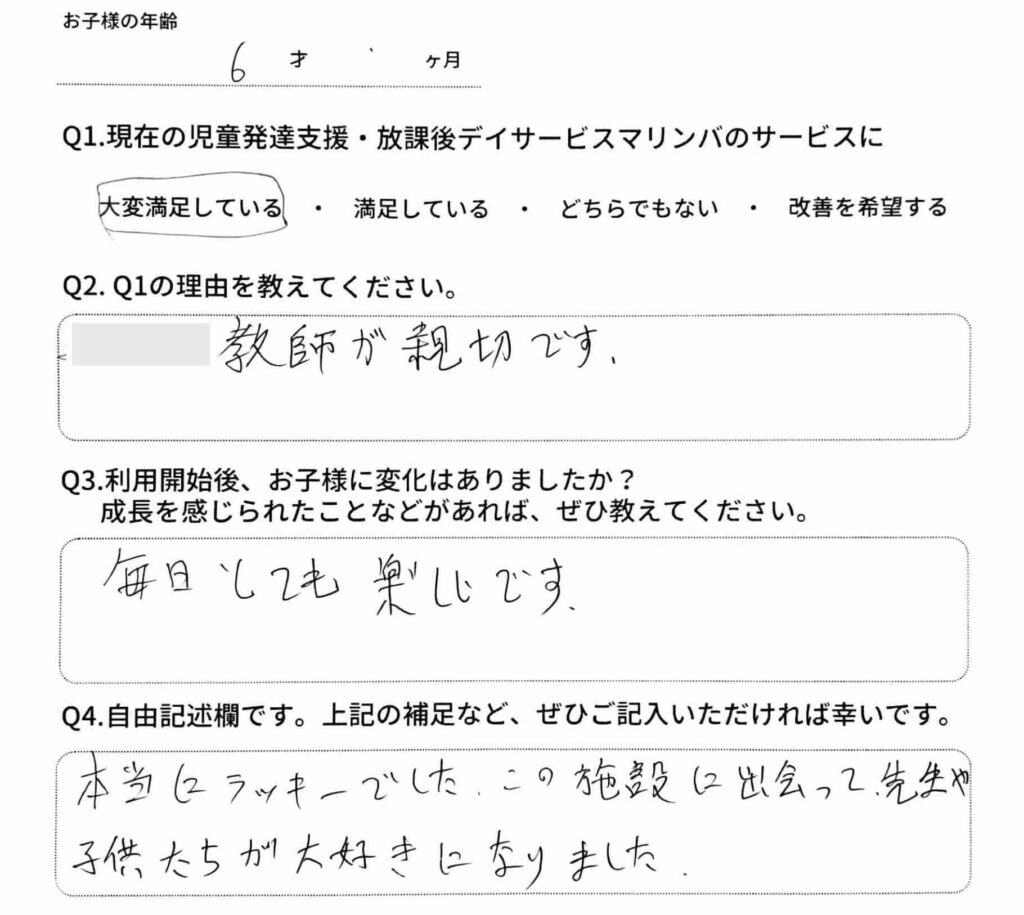 お子様の年齢
6 才 ヶ月
Q1.現在の児童発達支援・放課後デイサービスマリンバのサービスに
大変満足している ・ 満足している ・ どちらでもない ・ 改善を希望する
Q2. Q1の理由を教えてください。
教師が親切です.
Q3.利用開始後、お子様に変化はありましたか？
成長を感じられたことなどがあれば、ぜひ教えてください。
毎日とても楽しいです.
Q4.自由記述欄です。上記の補足など、ぜひご記入いただければ幸いです。
本当にラッキーでした.この施設に出会って.先生や
子供たちが大好きになりました.